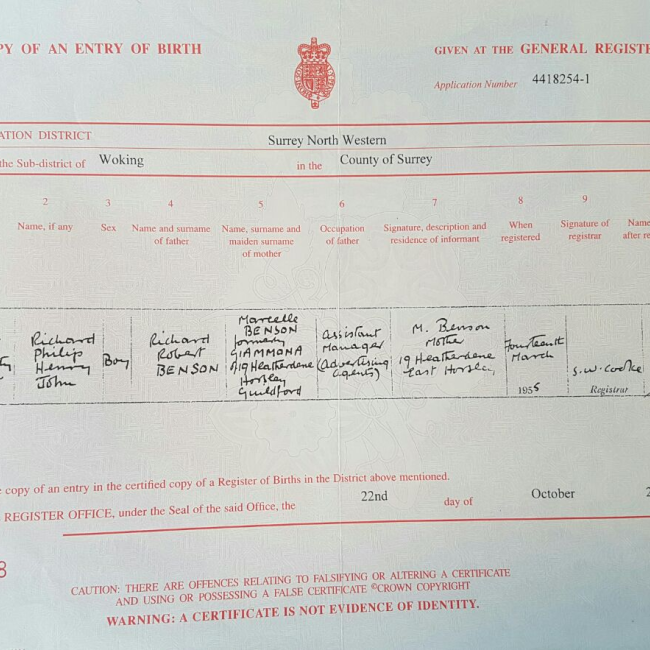 PY OF AN ENTRY OF BIRTH
GIVEN AT THE GENERAL REGIST
Application Number 4418254-1
ATION DISTRICT Surrey North Western
the Sub-district of Woking in the County of Surrey
2 3 4 5 6 7 8 9
Name, if any
Sex
Name and surname
of father
Name, surname and
maiden surname
of mother
Occupation
of father
Signature, description and
residence of informant
When
registered
Signature of
registrar
Name
after re
Richard
Philip
Henry
John
Boy
Richard
Robert
BENSON
Marcelle
BENSON
formerly
GIAMMONA
of 19 Heatherdene
Horsley
Guildford
Assistant
Manager
(Advertising
Agents)
M. Benson
Mother
19 Heatherdene
East Horsley
Fourteenth
March
1955
S.W. Cooke
Registrar
copy of an entry in the certified copy of a Register of Births in the District above mentioned.
REGISTER OFFICE, under the Seal of the said Office, the 22nd day of October 2
8
CAUTION: THERE ARE OFFENCES RELATING TO FALSIFYING OR ALTERING A CERTIFICATE
AND USING OR POSSESSING A FALSE CERTIFICATE ©CROWN COPYRIGHT
WARNING: A CERTIFICATE IS NOT EVIDENCE OF IDENTITY.